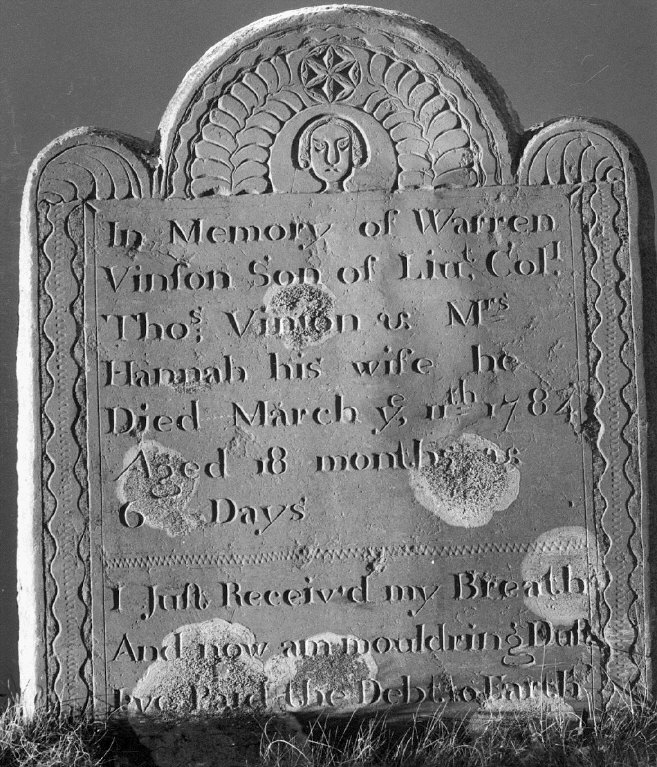 In Memory of Warren
Vinſon Son of Liuᵗ Colˡ
Thoˢ Vinſon & Mʳˢ
Hannah his wife he
Died March yᵉ 11ᵗʰ 1784
Aged 18 months &
6 Days
I Juſt Receiv'd my Breath
And now am mouldring Duſt
I've Paid the Debt to Earth